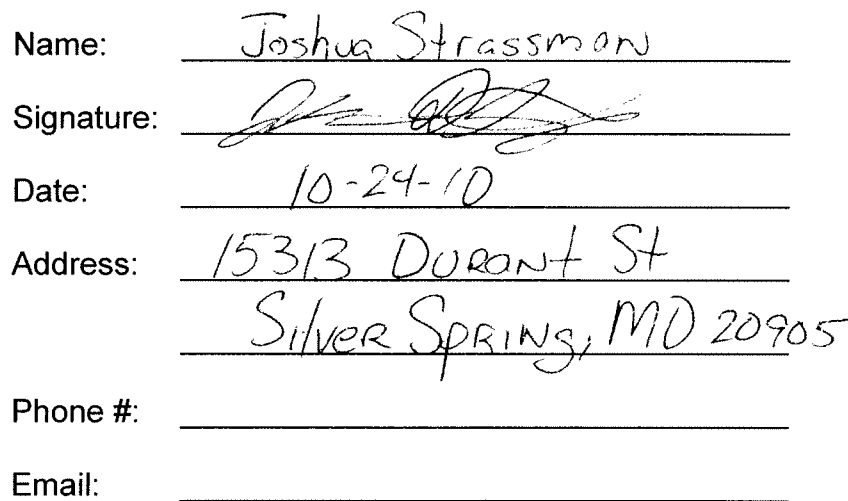 Name: Joshua Strassman
Signature:
Date: 10-24-10
Address: 15313 Durant St
Silver Spring, MD 20905
Phone #:
Email: